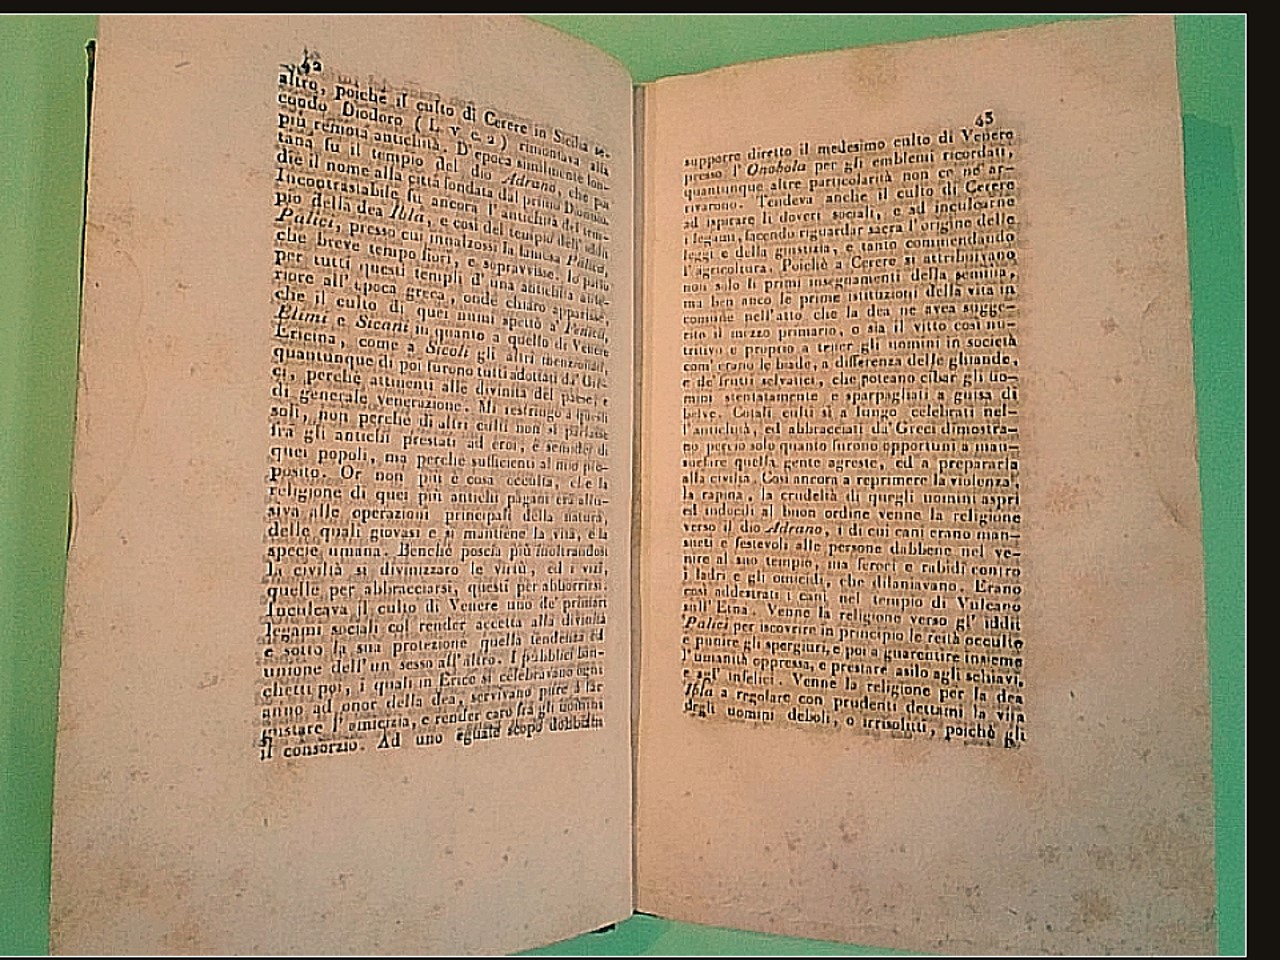 42
altro, poichè il culto di Cerere in Sicilia se-
condo Diodoro ( L. v. c. 2 ) rimontava alla
più remota antichità. D'epoca similmente lon-
tana fu il tempio del dio Adrano, che poi
die il nome alla città fondata dal primo Dionisio.
Incontrastabile fu ancora l'antichità del tem-
pio della dea Ibla, e così del tempio degl'iddii
Palici, presso cui innalzossi la famosa Palica,
che breve tempo fiorì, e sopravvisse. Io parlo
per tutti questi templi d'una antichità ante-
riore all'epoca greca, onde chiaro apparisse,
che il culto di quei numi spettò a' Fenici,
Elimi e Sicani in quanto a quello di Venere
Ericina, come a Sicoli gli altri menzionati,
quantunque di poi furono tutti adottati da' Gre-
ci, perchè attinenti alle divinità del paese, e
di generale venerazione. Mi restringo a questi
soli, non perchè di altri culti non si parlasse
fra gli antichi prestati ad eroi, e semidei di
quei popoli, ma perchè sufficienti al mio pro-
posito. Or non più è cosa occulta, che la
religione di quei più antichi pagani era allu-
siva alle operazioni principali della natura,
delle quali giovasi e si mantiene la vita, e la
specie umana. Benchè poscia più inoltrandosi
la civiltà si divinizzaro le virtù, ed i vizi,
quelle per abbracciarsi, questi per abborrirsi.
Inculcava il culto di Venere uno de' primari
legami sociali col render accetta alla divinità
e sotto la sua protezione quella tendenza ed
unione dell'un sesso all'altro. I pubblici ban-
chetti poi, i quali in Erice si celebravano ogni
anno ad onor della dea, servivano pure a far
gustare l'amicizia, e render caro fra gli uomini
il consorzio. Ad uno eguale scopo dobbiam
43
supporre diretto il medesimo culto di Venere
presso l'Onobola per gli emblemi ricordati,
quantunque altre particolarità non ce ne ar-
rivarono. Tendeva anche il culto di Cerere
ad ispirare li doveri sociali, e ad inculcarne
i legami, facendo riguardar sacra l'origine delle
leggi e della giustizia, e tanto commendando
l'agricoltura. Poichè a Cerere si attribuivano
non solo li primi insegnamenti della semina,
ma ben anco le prime istituzioni della vita in
comune nell'atto che la dea ne avea sugge-
rito il mezzo primario, o sia il vitto così nu-
tritivo e proprio a tener gli uomini in società
com'erano le biade, a differenza delle ghiande,
e de' frutti selvatici, che poteano cibar gli uo-
mini stentatamente e sparpagliati a guisa di
belve. Cotali culti sì a lungo celebrati nel-
l'antichità, ed abbracciati da' Greci dimostra-
no perciò solo quanto furono opportuni a man-
suefare quella gente agreste, ed a prepararla
alla civiltà. Così ancora a reprimere la violenza,
la rapina, la crudelià di quegli uomini aspri
ed indocili al buon ordine venne la religione
verso il dio Adrano, i di cui cani erano man-
sueti e festevoli alle persone dabbene nel ve-
nire al suo tempio, ma feroci e rabidi contro
i ladri e gli omicidi, che dilaniavano. Erano
così addestrati i cani nel tempio di Vulcano
sull'Etna. Venne la religione verso gl'iddii
Palici per iscovrire in principio le reità occulte
e punire gli spergiuri, e poi a guarentire insieme
l'umanità oppressa, e prestare asilo agli schiavi,
e agl'infelici. Venne la religione per la dea
Ibla a regolare con prudenti dettami la vita
degli uomini deboli, o irrisolutti, poichè gli